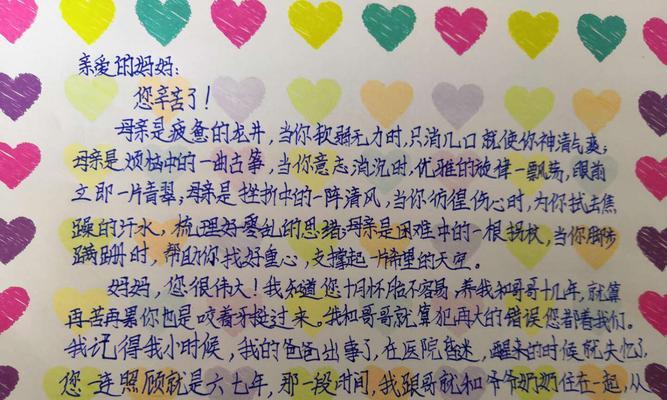 亲爱的妈妈：
您辛苦了！
母亲是疲惫的龙井，当你软弱无力时，只消几口就使你神清气爽；
母亲是烦恼中的一曲古筝，当你意志消沉时，优雅的旋律一飘荡，眼前
立即一片青翠；母亲是挫折中的一阵清风，当你彷徨伤心时，为你拭去焦
躁的汗水，梳理好零乱的思绪；母亲是困难中的一根拐杖，当你脚步
蹒跚时，帮助你找好重心，支撑起一片希望的天空。
妈妈，您很伟大！我知道您十月怀胎不容易，养我和哥哥十几年，就算
再苦再累你也是咬着牙挺过来。我和哥哥就算犯再大的错误您都陪我们。
我记得我小时候，我的爸爸出事了，在医院昏迷，醒来的时候就失忆了，
您一连照顾就是六七年，那一段时间，我跟哥就和爷爷奶奶住在一起，从